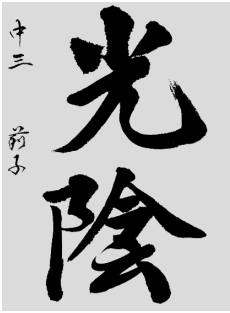 光陰
中三 前子